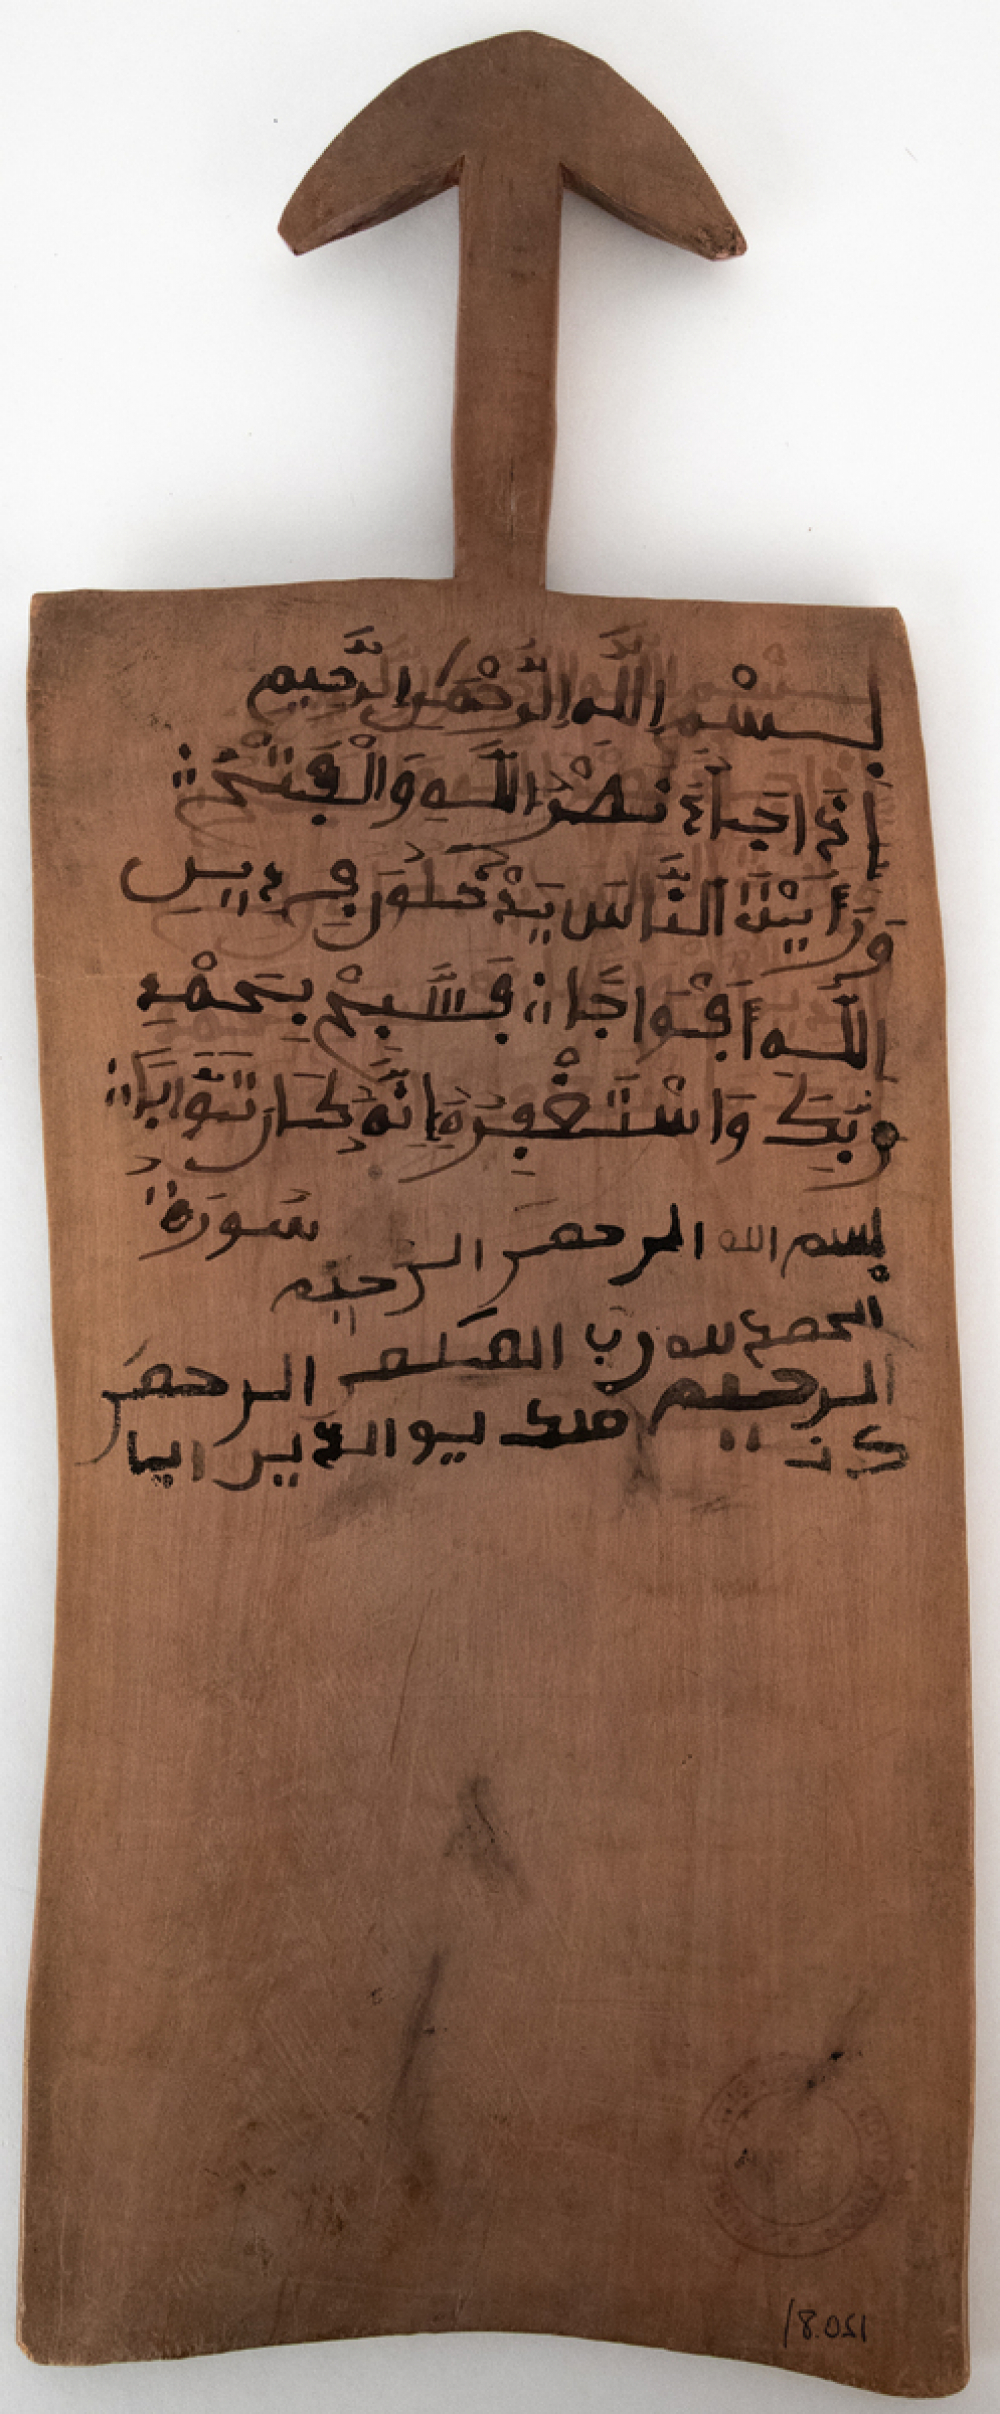 بِسْمِ اللَّهِ الرَّحْمَٰنِ الرَّحِيمِ
إِذَا جَاءَ نَصْرُ اللَّهِ وَالْفَتْحُ
وَرَأَيْتَ النَّاسَ يَدْخُلُونَ فِي دِينِ
اللَّهِ أَفْوَاجًا فَسَبِّحْ بِحَمْدِ
رَبِّكَ وَاسْتَغْفِرْهُ إِنَّهُ كَانَ تَوَّابًا
سورة
بسم الله الرحمن الرحيم
الحمد لله رب العلمين الرحمن
الرحيم ملك يو الدين ايا
ك ن